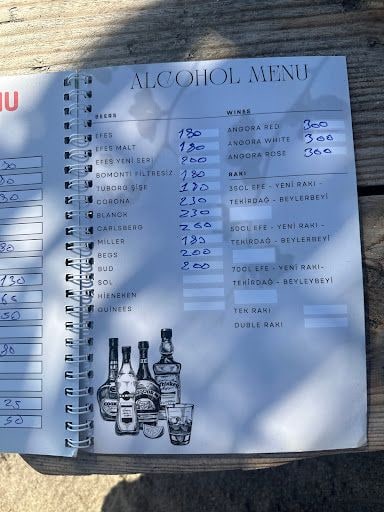 ALCOHOL MENU
BEERS
EFES 180
EFES MALT 180
EFES YENİ SERİ 200
BOMONTI FILTRESIZ 180
TUBORG ŞİŞE 180
CORONA 230
BLANCK 230
CARLSBERG 260
MILLER 180
BEGS 200
BUD 200
SOL
HIENEKEN
QUINEES
WINES
ANGORA RED 300
ANGORA WHITE 300
ANGORA ROSE 300
RAKI
35CL EFE - YENİ RAKI -
TEKİRDAĞ - BEYLERBEYİ
50CL EFE - YENİ RAKI -
TEKİRDAĞ - BEYLERBEYİ
70CL EFE - YENİ RAKI-
TEKİRDAĞ - BEYLEYBEYİ
TEK RAKI
DUBLE RAKI